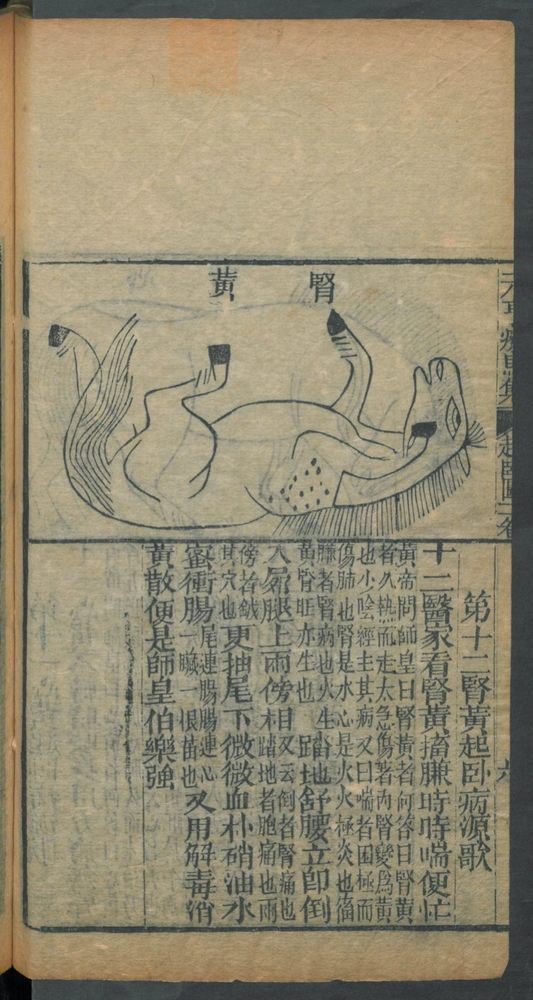 腎黃
第十二腎黃起卧病源歌
十二醫家看腎黃搐臁時時喘便忙
黃帝問師皇曰腎黃者何答曰腎黃
者久熱而走太急傷著內腎變爲黃
也小唫經主其病又曰喘者困極而
傷肺也腎是水心是火火極炎也搐
臁者腎病也火生
黃腎旺亦生也 踏地舒腰立卽倒
入 腿上兩傍相 踏地者胞痛也兩
又云倒者腎痛也
傍者
其穴也 更抽尾下微微血朴硝油水
蜜衝腸 尾連腸腸連心
一嚥一恨苗也 又用解毒消
黃散便是師皇伯樂強